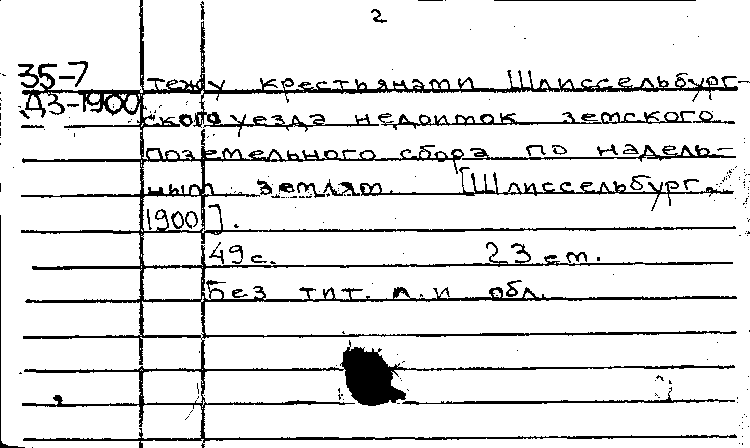 2
35-7
ДЗ-1900
тежу крестьянами Шлиссельбург-
ского уезда недоимок земского
поземельного сбора по надель-
ным землям. [Шлиссельбург,
1900].
49 с. 23 см.
Без тит. л. и обл.